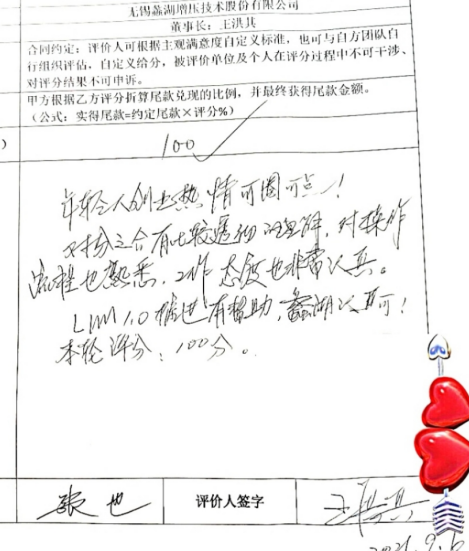 无锡蠡湖增压技术股份有限公司
董事长：王洪其
合同约定：评价人可根据主观满意度自定义标准，也可与自方团队自
行组织评估，自定义给分，被评价单位及个人在评分过程中不可干涉、
对评分结果不可申诉。
甲方根据乙方评分折算尾款兑现的比例，并最终获得尾款金额。
（公式：实得尾款=约定尾款×评分%）
）
100
年轻人创业热情可圈可点！
对 有比较透彻的理解，对操作
流程也熟悉，工作态度也非常认真。
1.0推进有帮助，蠡湖认可！
本轮评分：100分。
张也 评价人签字 王洪其
2021.9.6